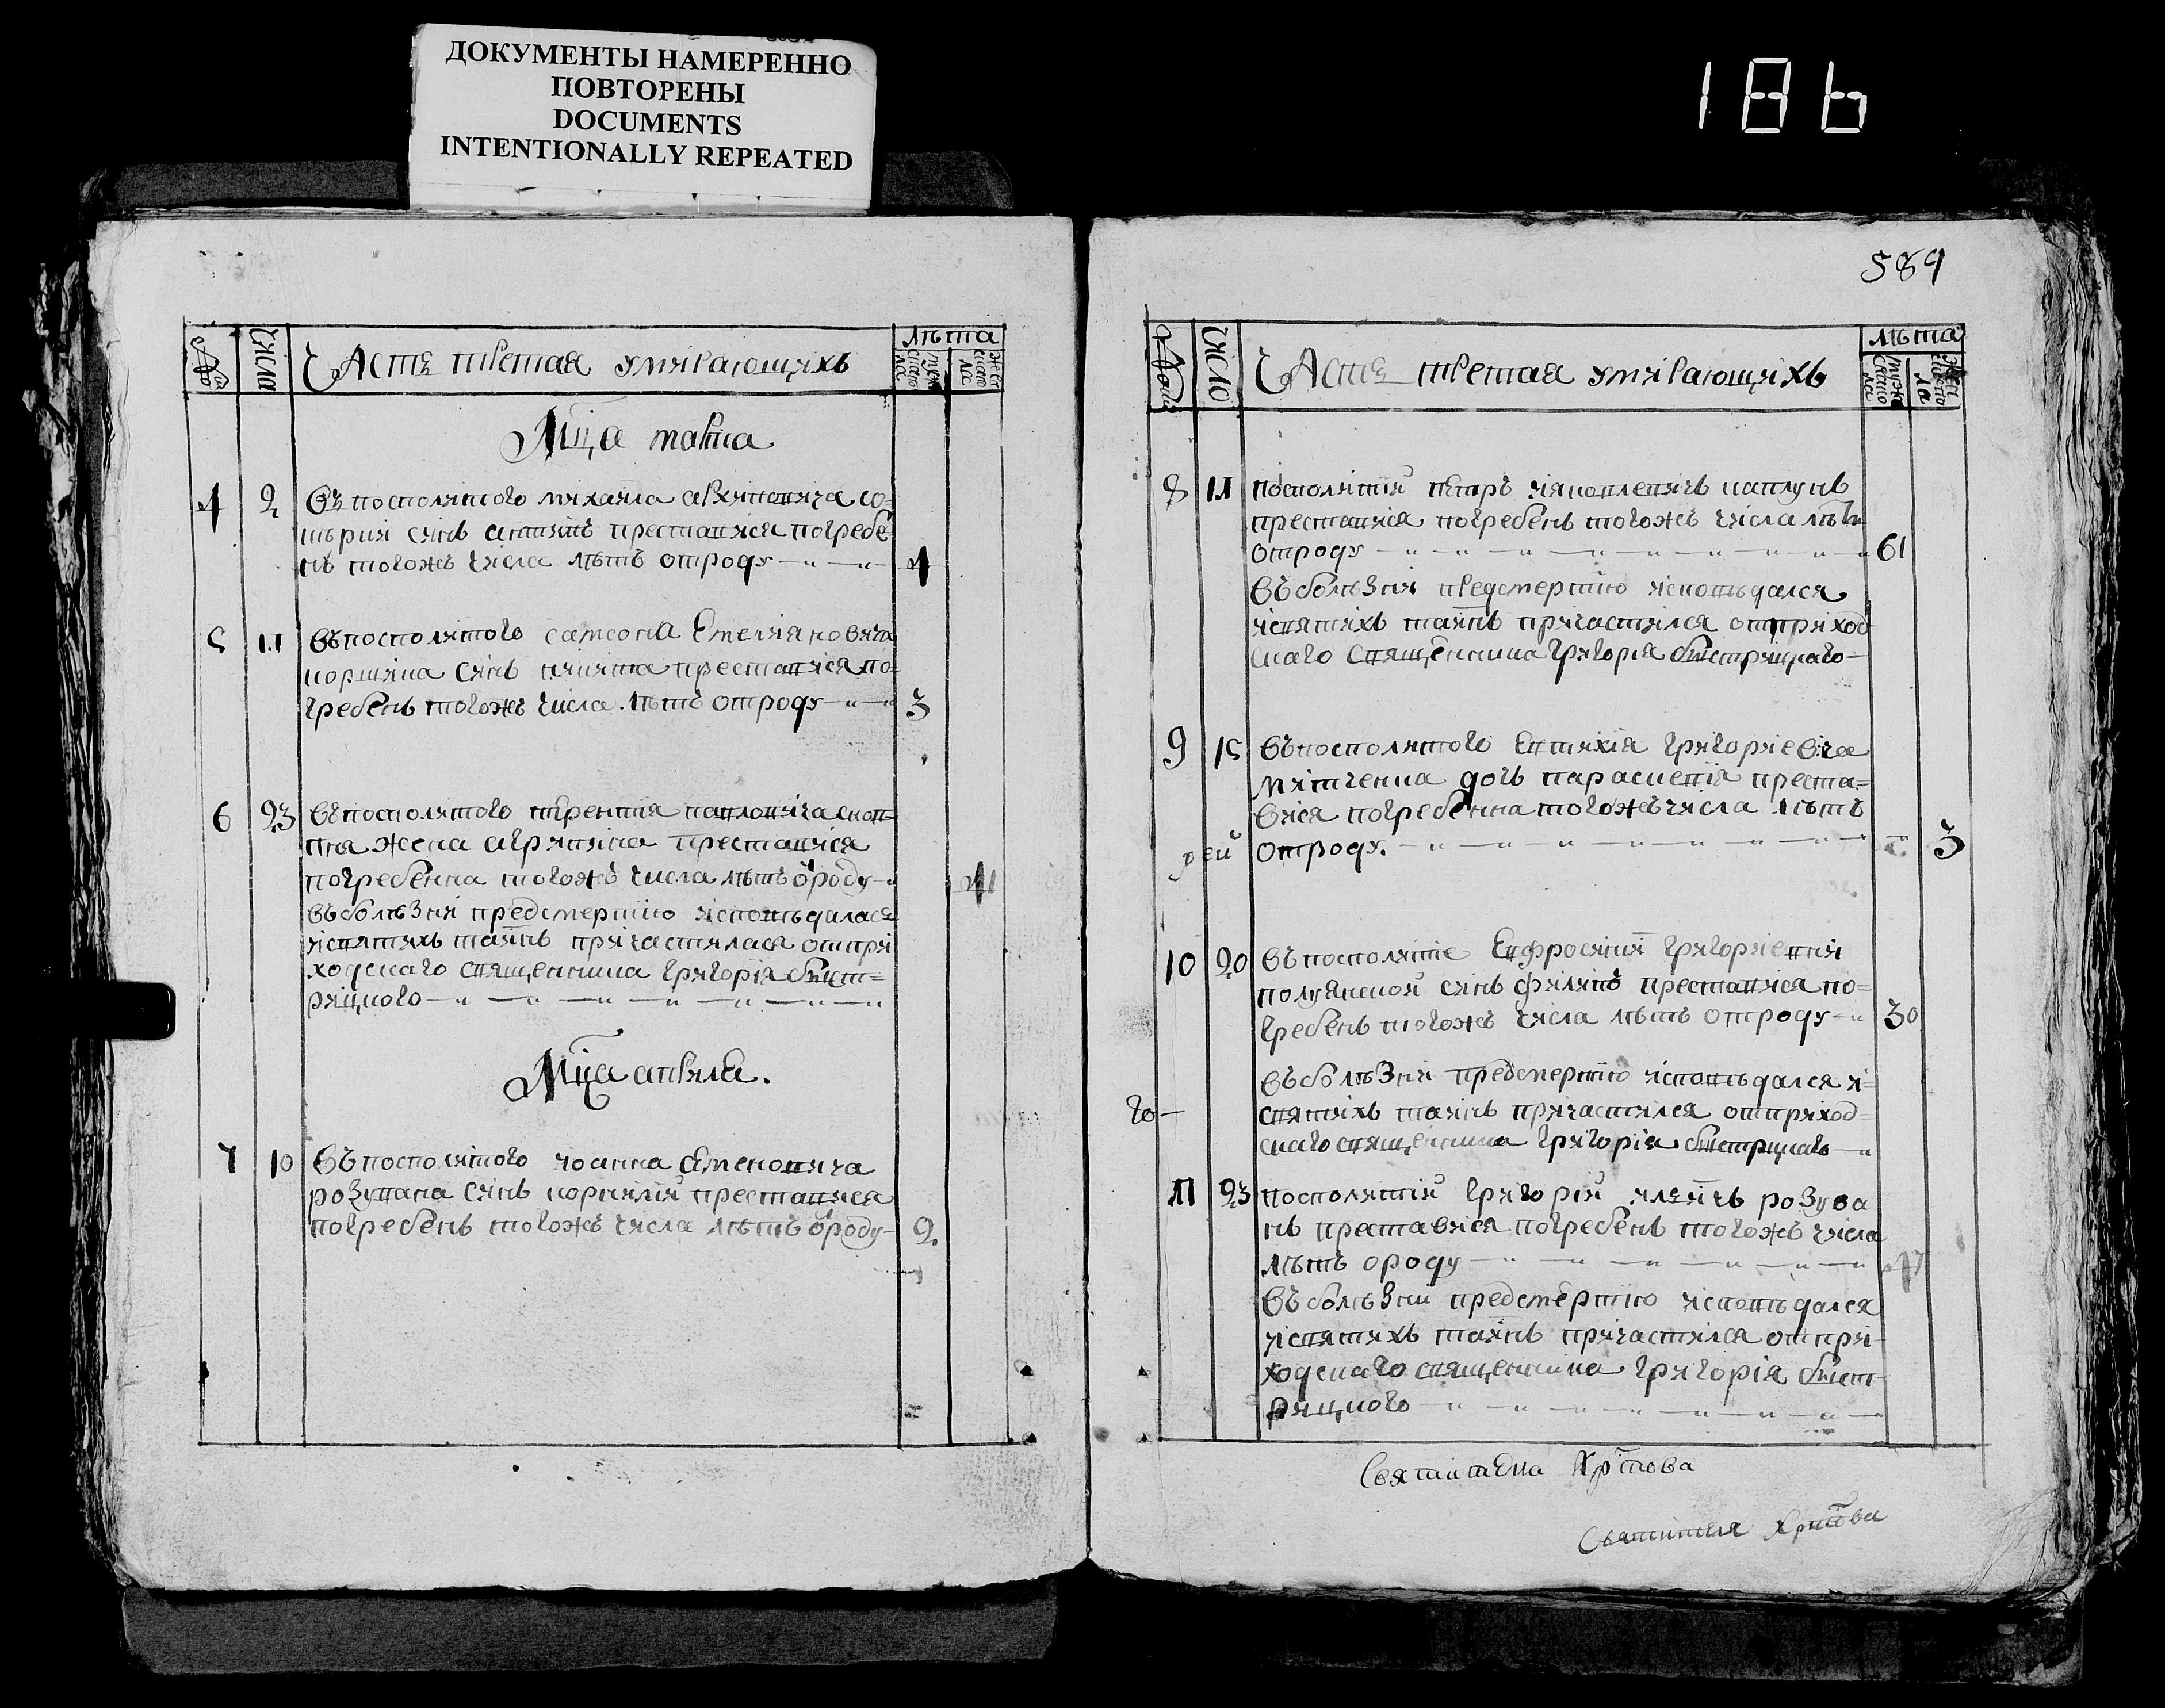 ДОКУМЕНТЫ НАМЕРЕННО
ПОВТОРЕНЫ
DOCUMENTS
INTENTIONALLY REPEATED
186
число
Часть третая умирающихъ
лѣта
Мца марта
4 2 въ посполитого михаила
синъ преставися погребе
нъ тогожъ числа лѣтъ отроду 4
5 11 въ посполитого самсона Емелияновича
коршина синъ никита преставися по=
гребенъ тогожъ числа лѣтъ отроду 3
6 23 въ посполитого терентия павловича
жена преставися
погребенна тогожъ числа лѣтъ ѿроду 41
въ болѣзни предсмертию исповѣдалася
исвятихъ таинъ причастилася отпри
ходскаго священника григория бист=
рицкого
Мца априля.
7 10 въ посполитого иоанна семеновича
розувана синъ корнилий преставися
погребенъ тогожъ числа лѣтъ ѿроду 2.
589
число
Часть третая умирающихъ
лѣта
8 11 посполитий петръ
преставися погребенъ тогожъ числа лѣтъ
отроду 61
въ болѣзни предсмертию исповѣдался
исвятихъ таинъ причастился отприход
скаго священника григория бистрицкаго
9 15 въ посполитого Евтихия григориевича
дочь параскевия преста=
вися погребенна тогожъ числа лѣтъ
отроду. 3
10 20 въ посполитие Евфросинии григориевни
синъ филипъ преставися по=
гребенъ тогожъ числа лѣтъ отроду 30
въ болѣзни предсмертию исповѣдался и=
святихъ таинъ причастился отприход=
скаго священника григория бистрицкаго
го
11 23 посполитий григорий розува
нъ преставися погребенъ тогожъ числа
лѣтъ ороду
въ болѣзни предсмертию исповѣдался
исвятихъ таинъ причастился отпри
ходскаго священника григория бист
рицкого
Святителя Хрстова
Святителя Хрстова